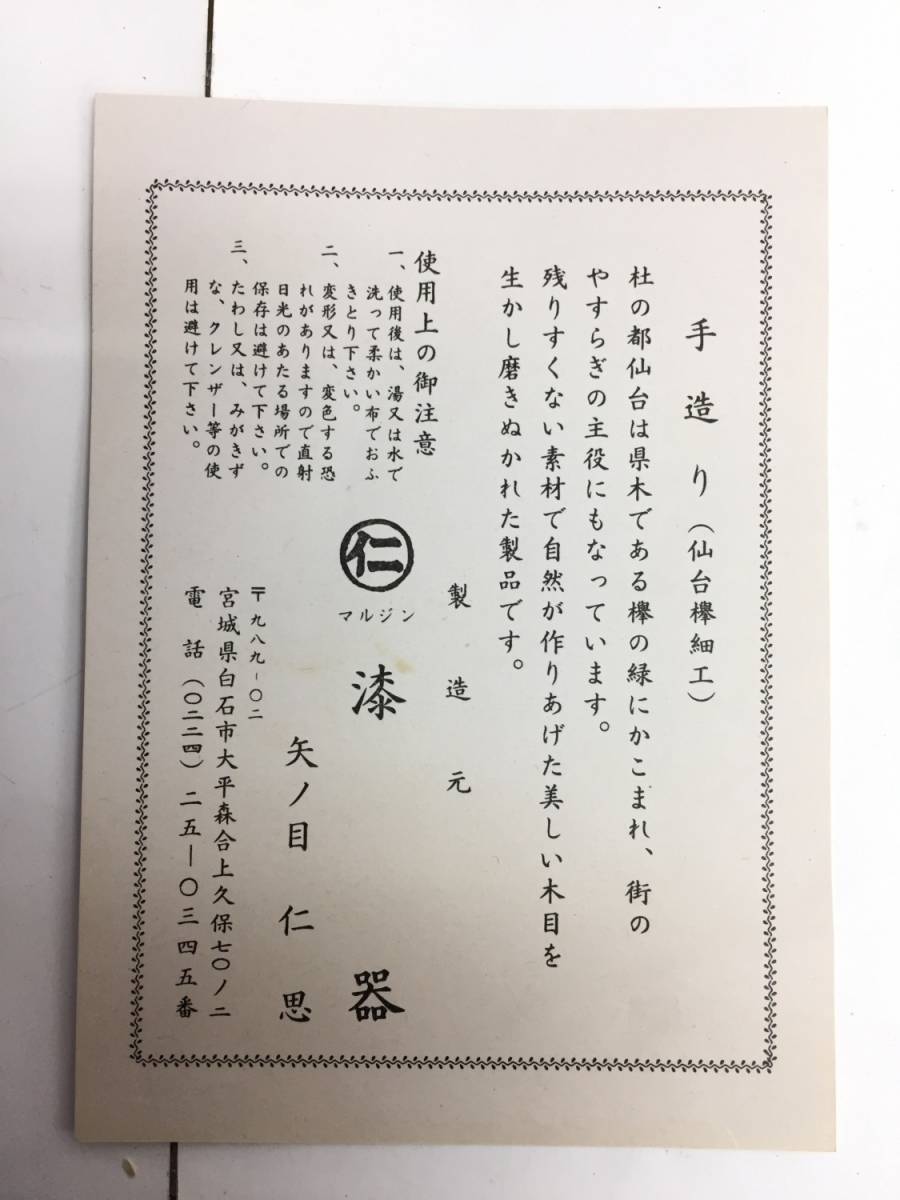 手造り(仙台欅細工)
杜の都仙台は県木である欅の緑にかこまれ、街の
やすらぎの主役にもなっています。
残りすくない素材で自然が作りあげた美しい木目を
生かし磨きぬかれた製品です。
使用上の御注意
一、使用後は、湯又は水で
洗って柔かい布でおふ
きとり下さい。
二、変形又は、変色する恐
れがありますので直射
日光のあたる場所での
保存は避けて下さい。
三、たわし又は、みがきず
な、クレンザー等の使
用は避けて下さい。
製造元
仁
マルジン
漆器
矢ノ目仁思
〒九八九-〇二
宮城県白石市大平森合上久保七〇ノ二
電話(〇二二四)二五―〇三四五番